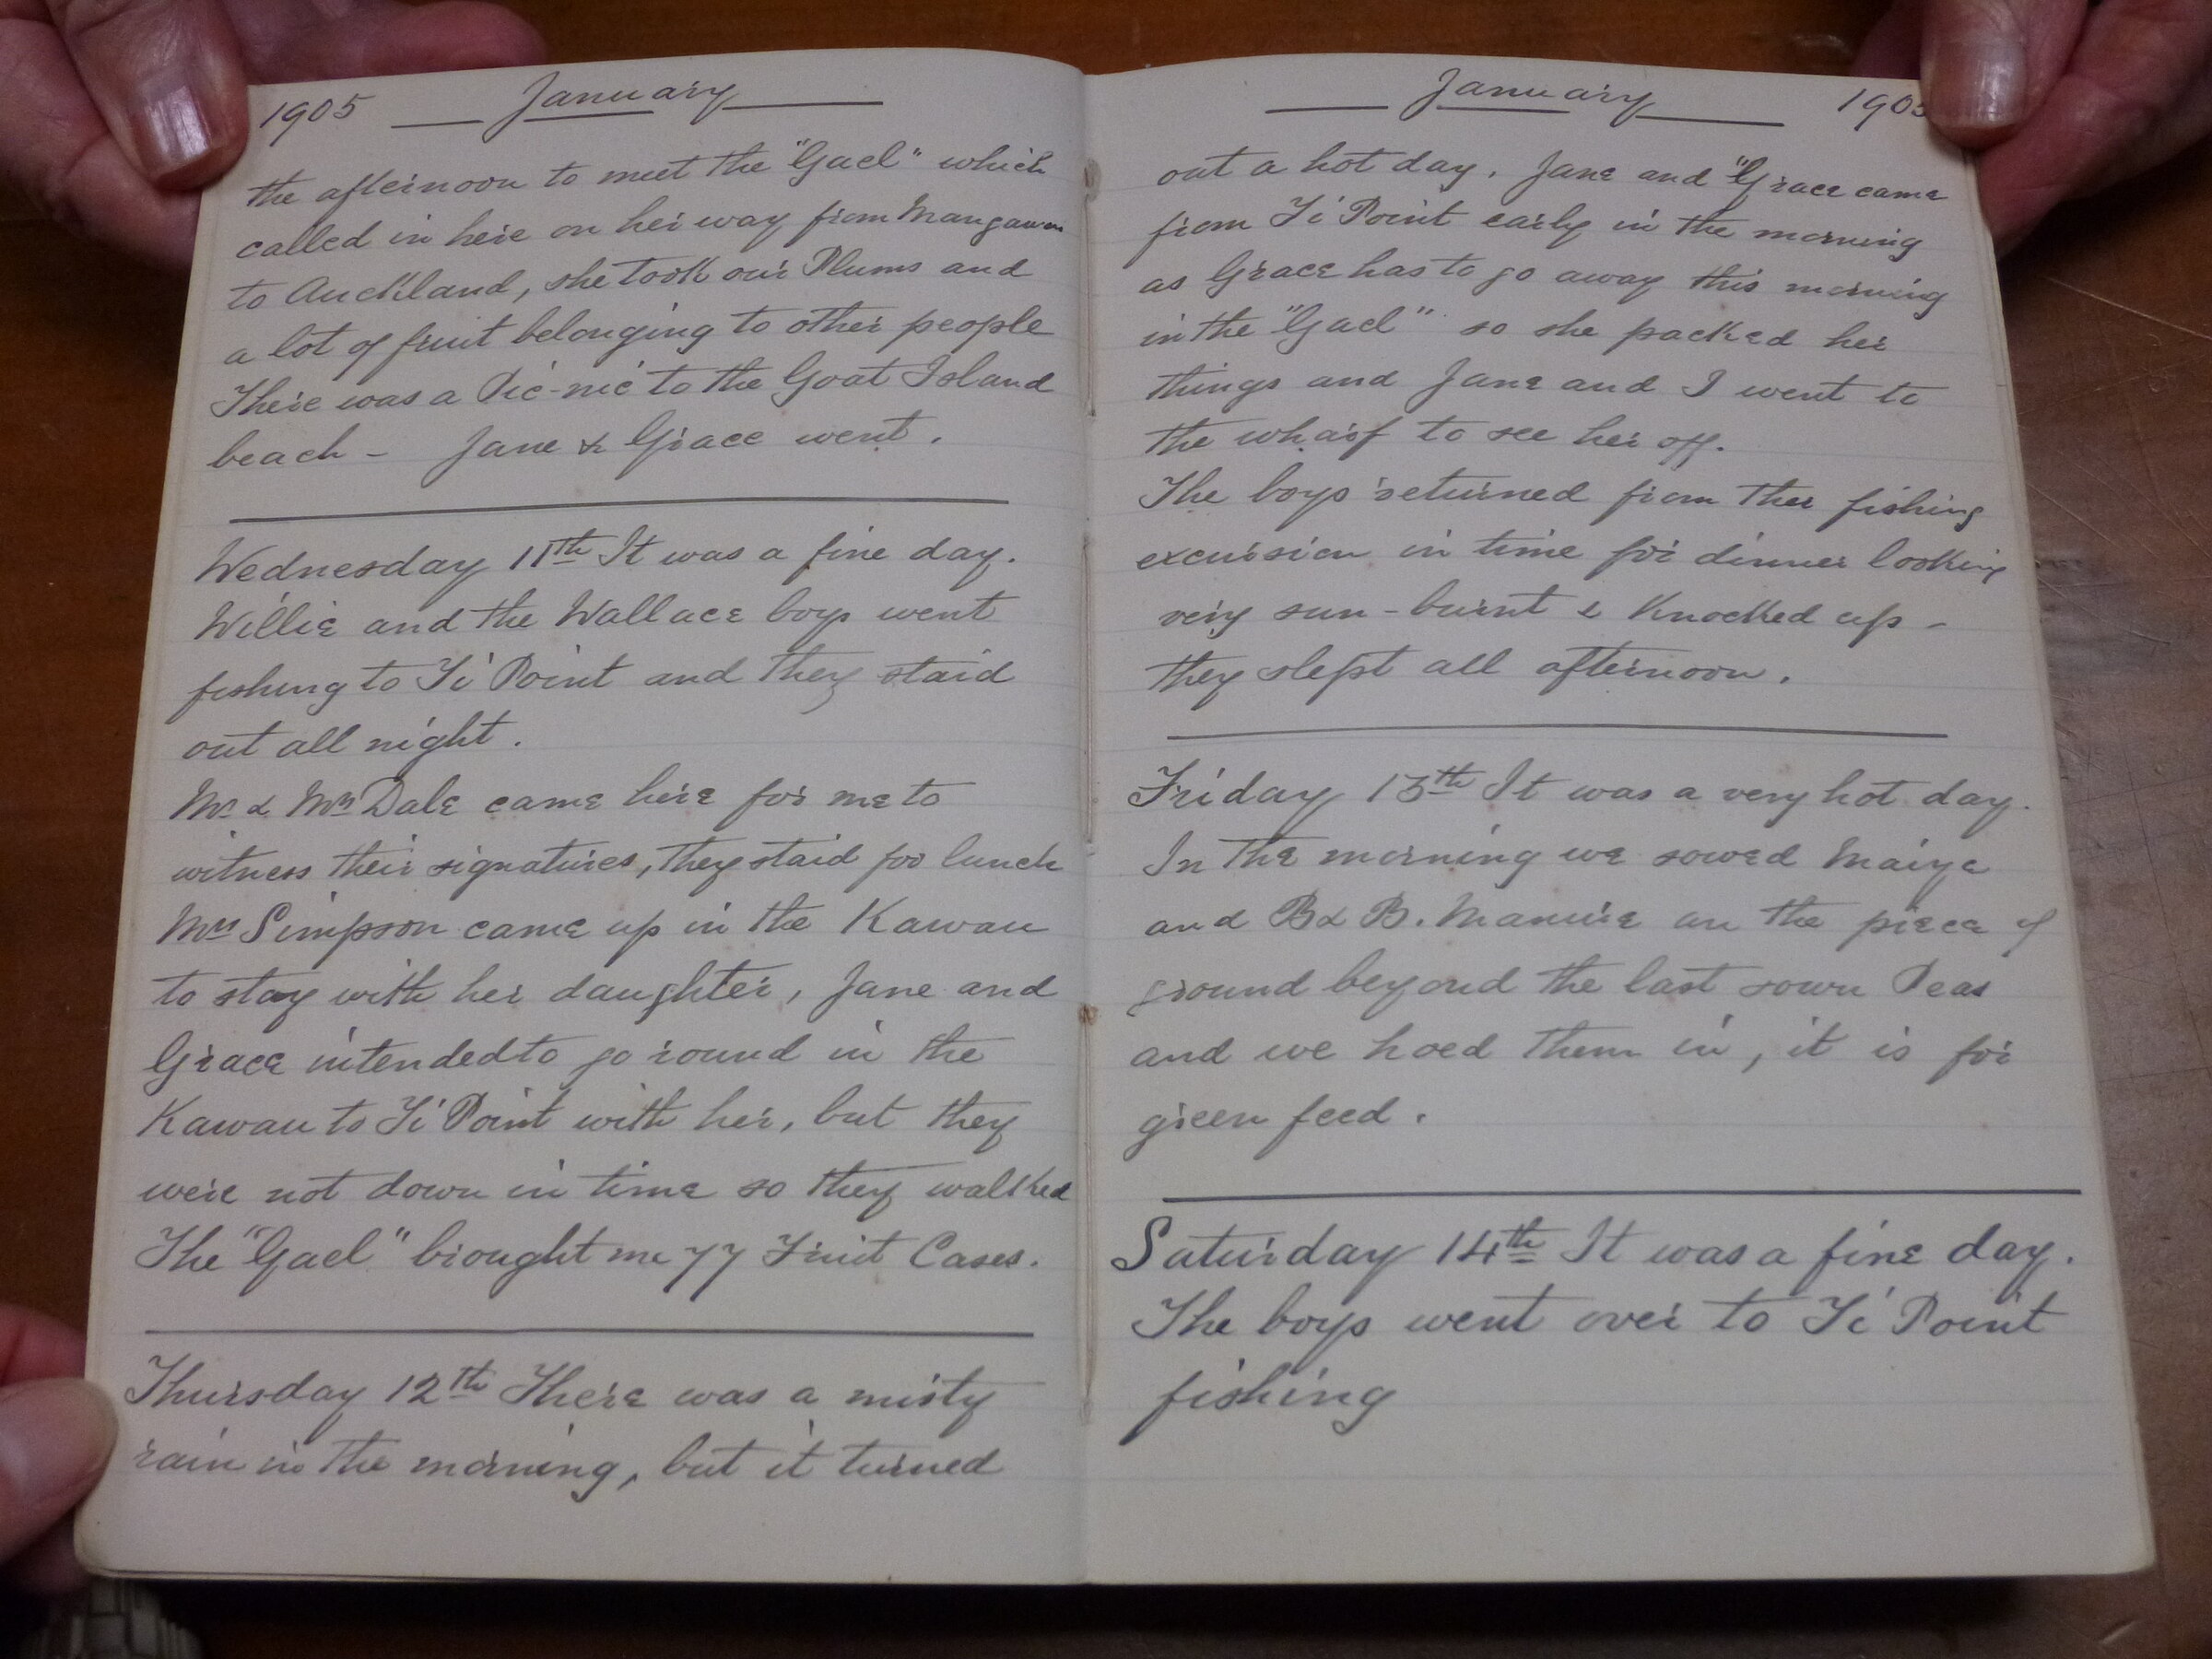 1905 January
the afternoon to meet the "Gael" which
called in here on her way from Mangawai
to Auckland, she took our Plums and
a lot of fruit belonging to other people
There was a Pic-nic to the Goat Island
beach - Jane & Grace went.
Wednesday 11th It was a fine day.
Willie and the Wallace boys went
fishing to Ti Point and they staid
out all night.
Mr & Mrs Dale came here for me to
witness their signatures, they staid for lunch
Mrs Simpson came up in the Kawau
to stay with her daughter, Jane and
Grace intended to go round in the
Kawau to Ti Point with her, but they
were not down in time so they walked
The "Gael" brought me 77 Fruit Cases.
Thursday 12th There was a misty
rain in the morning, but it turned
January 1905
out a hot day. Jane and "Grace came
from Ti Point early in the morning
as Grace has to go away this morning
in the "Gael" so she packed her
things and Jane and I went to
the wharf to see her off.
The boys returned from ther fishing
excursion in time for dinner looking
very sun-burnt & Knocked up -
they slept all afternoon.
Friday 13th It was a very hot day.
In the morning we sowed Maize
and B & B. Manure on the piece of
ground beyond the last sown Peas
and we hoed them in, it is for
green feed.
Saturday 14th It was a fine day.
The boys went over to Ti Point
fishing